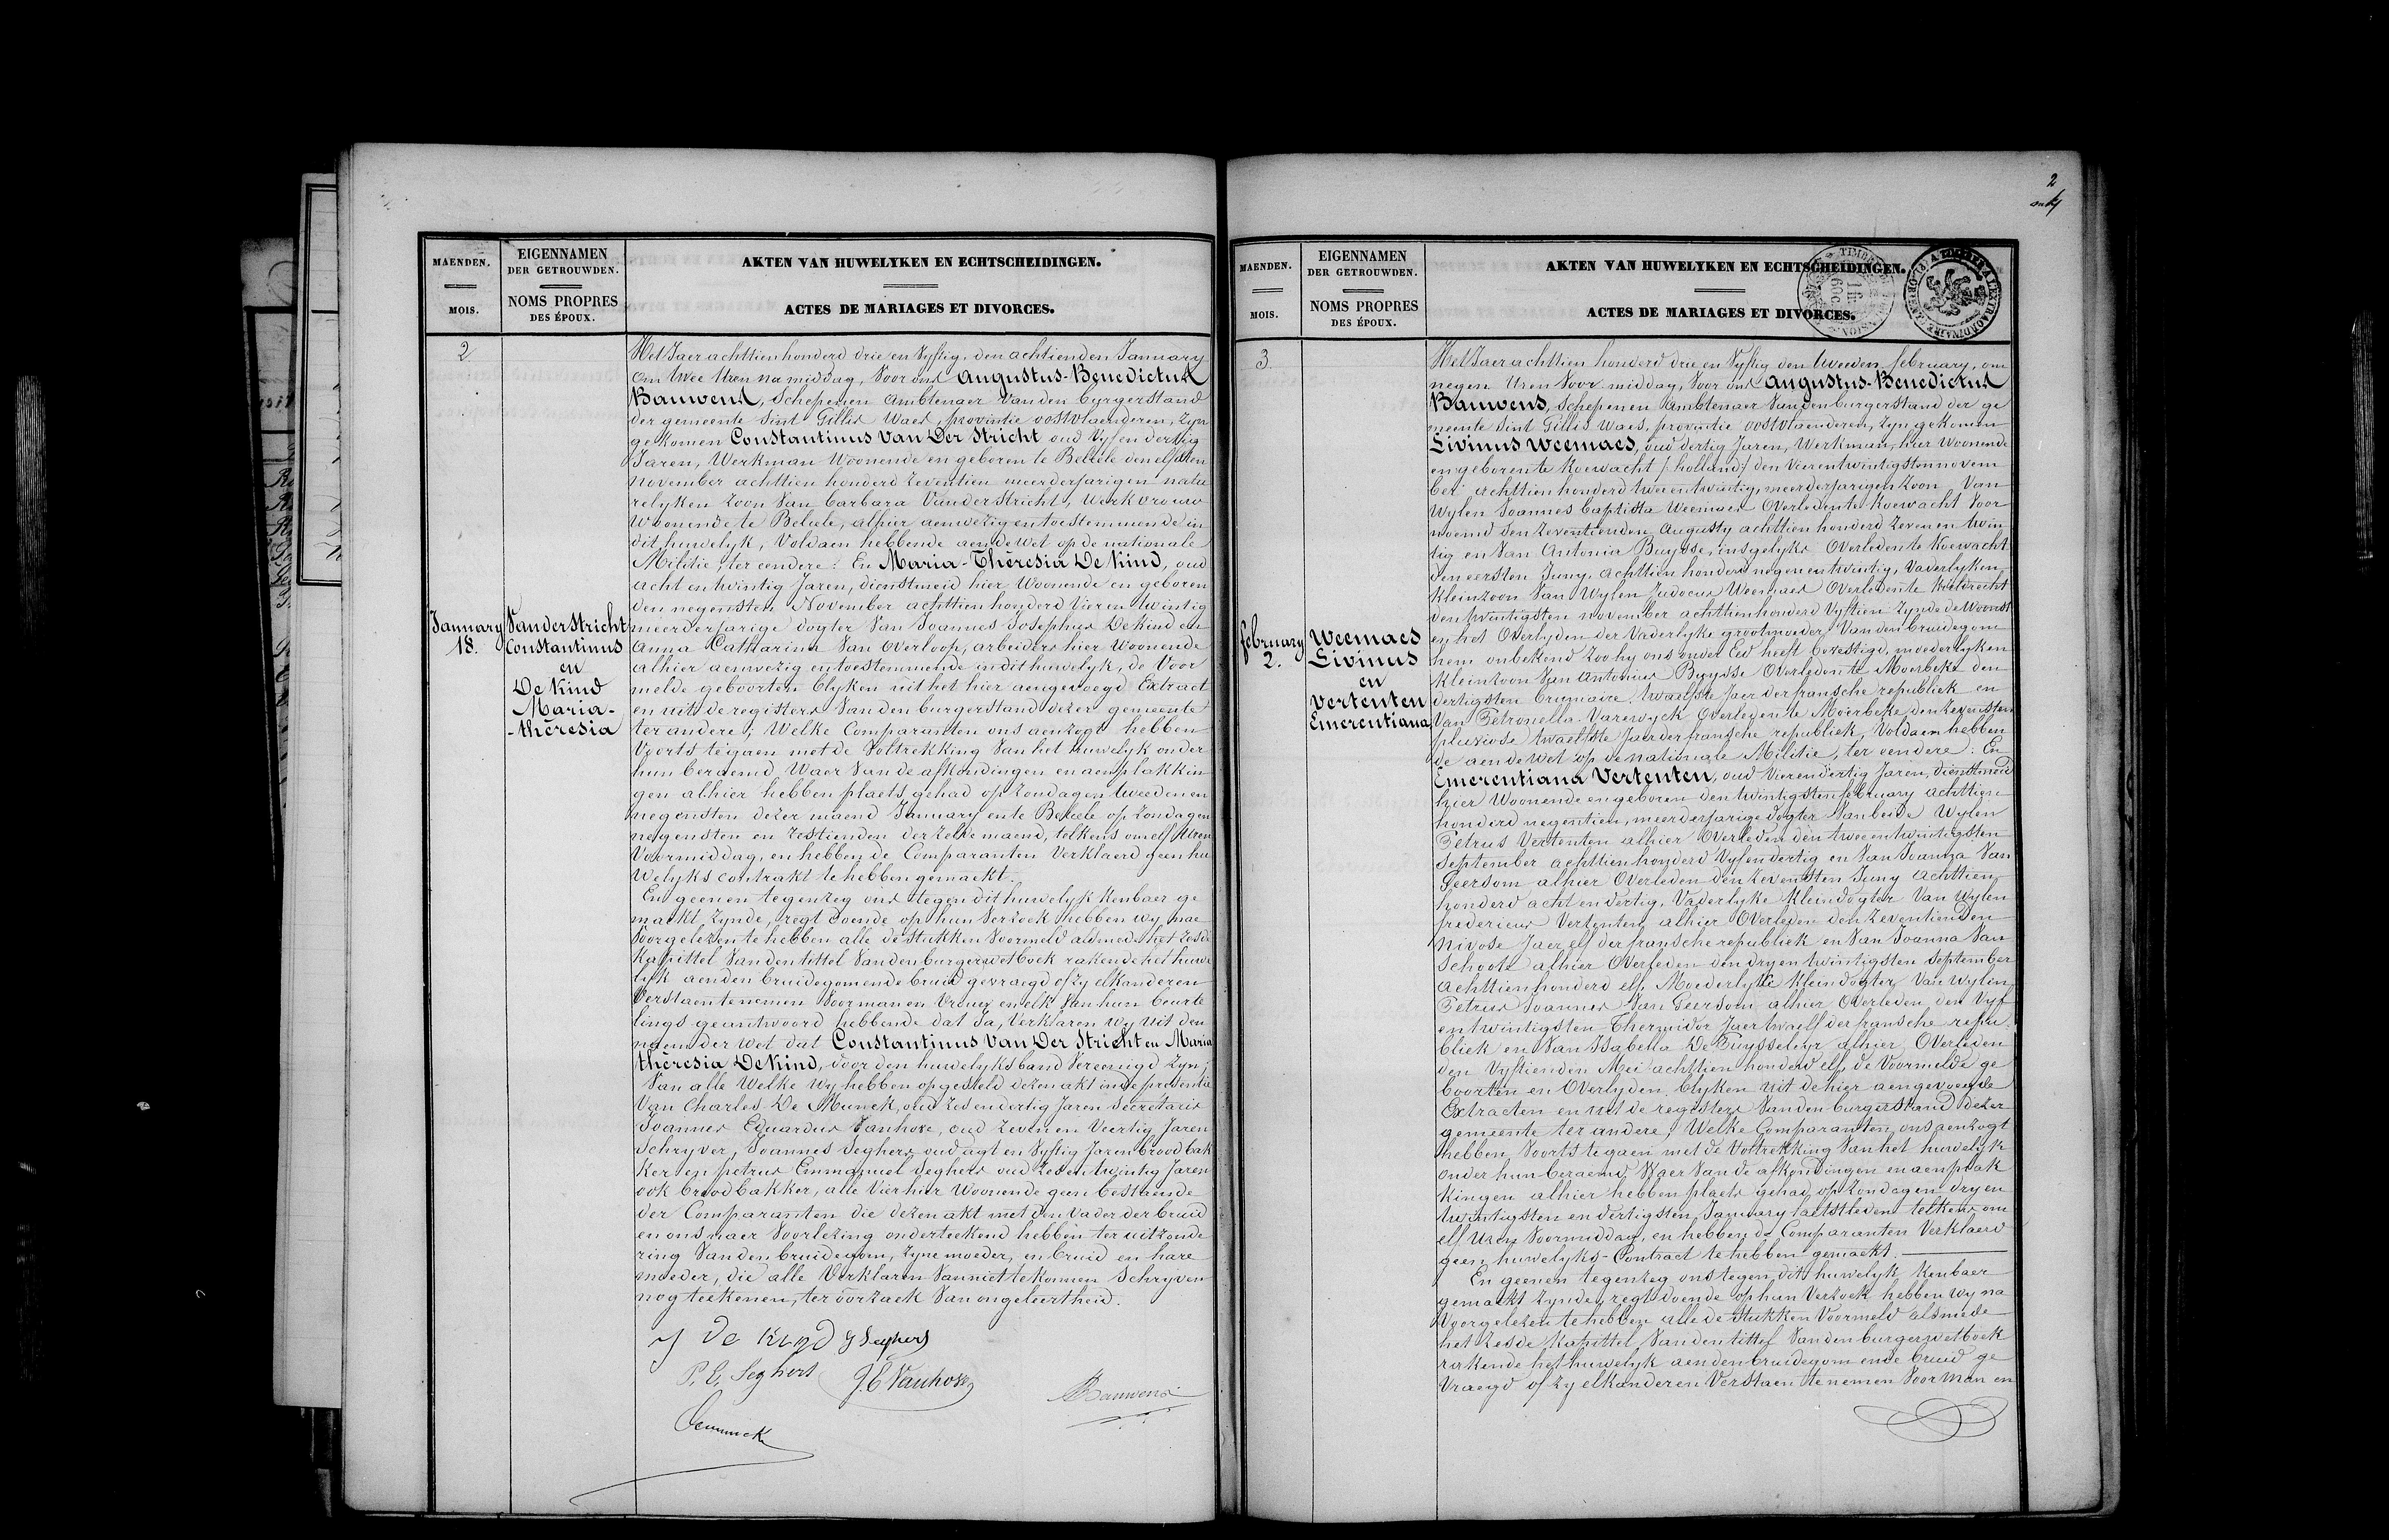 MAENDEN.
MOIS.
EIGENNAMEN
DER GETROUWDEN.
NOMS PROPRES
DES ÉPOUX.
AKTEN VAN HUWELYKEN EN ECHTSCHEIDINGEN.
ACTES DE MARIAGES ET DIVORCES.
2
January
18.
Van der Stricht
Constantinus
en
De Kind
Maria-
-thèresia
Het Jaer achttien honderd drie en Vyftig, den achtienden January
om twee Uren na middag, Voor ons Augustus-Benedictus
Bauwens, Schepenen Ambtenaer van den burgerstand
der gemeente Sint Gillis Waes, provintie oostvlaenderen, Zyn
gekomen Constantinus Van Der Stricht oud Vyf en dertig
Jaren, Werkman Woonende en geboren te Belsele den elfsten
November achttien honderd zeventien meerderjarigen natu
relyken Zoon Van Barbara Vander Stricht, Werkvrouw
Woonende te Belsele, alhier aenwezig en toestemmende in
dit huwelyk, Voldaen hebbende aen de wet op de nationale
Militie, ter eendere: En Maria-Thèresia De Kind, oud
acht en twintig Jaren, dienstmeid hier Woonende en geboren
den negensten November achttien honderd Vier en twintig
meerderjarige dogter Van Joannes Josephus De Kind en
Anna Catharina Van Overloop, arbeiders hier Woonende
alhier aenwezig en toestemmende in dit huwelyk, de Voor
melde geboorten blyken uit het hier aengevoegd Extract
en uit de registers Van den burgerstand dezer gemeente
ter andere; Welke Comparanten ons aenzogt hebben
Voorts te gaen met de Voltrekking Van het huwelyk onder
hun beraemd Waer Van de afkondingen en aenplakkin
gen alhier hebben plaets gehad op Zondagen tweeden en
negensten dezer maend January en te Belsele op Zondagen
negensten en Zestienden der zelve maend, telkens om elf Uren
Voormiddag, en hebben de Comparanten Verklaerd geen hu
welyks contrakt te hebben gemaekt.
En geenen tegenzeg ons tegen dit huwelyk kenbaer ge
maekt Zynde, regt doende op hun Verzoek hebben wy nae
Voorgelezen te hebben alle de stukken Voormeld alsmede het zesde
Kapittel Van den tittel Van den burgerwetboek rakende het huwe
lyk aen den bruidegom en de bruid gevraegd of zy elkanderen
Verstaen te nemen Voor man en Vrouw en elk Van hun beurte
lings geantwoord hebbende dat Ja, Verklaren Wy uit den
naem der Wet dat Constantinus Van Der Stricht en Maria
thèresia De Kind, door den huwelyksband Vereenigd Zyn;
Van alle Welke Wy hebben opgesteld dezen akt in de presentie
Van Charles De Munck, oud Zes en dertig Jaren Secretaris
Joannes Eduardus Vanhove, oud Zeven en Veertig Jaren
Schryver, Joannes Seghers oud agt en Vyftig Jaren broodbak
ker en petrus Emmanuel Seghers oud Zes en twintig Jaren
ook broodbakker, alle Vier hier Woonende geen bestaende
der Comparanten die dezen akt met den Vader der bruid
en ons naer Voorlezing onderteekend hebben ter uitzonde
ring Van den bruidegom, Zyne moeder, en bruid en hare
moeder, die alle Verklaren Van niet te konnen Schryven
nog teekenen, ter oorzaek Van ongeleertheid.
J De Kind J Seghers
P. E. Seghers J E Vanhove
Bauwens
Demunck
2
MAENDEN.
MOIS.
EIGENNAMEN
DER GETROUWDEN.
NOMS PROPRES
DES ÉPOUX.
AKTEN VAN HUWELYKEN EN ECHTSCHEIDINGEN.
ACTES DE MARIAGES ET DIVORCES.
3
february
2.
Weemaes
Livinus
en
Vertenten
Emerentiana
Het Jaer achttien honderd drie en Vyftig den tweeden february, om
negen Uren Voor middag, Voor ons Augustus-Benedictus
Bauwens, Schepenen Ambtenaer Van den burgerstand der ge
meente Sint Gillis Waes, provintie oostvlaenderen, Zyn gekomen
Livinus Weemaes, oud dertig Jaren, Werkman, hier Woonende
en geboren te Koewacht /:holland:/ den Vier en twintigsten novem
ber achttien honderd twee en twintig, meerderjarigen Zoon Van
Wylen Joannes baptista Weemaes Overleden te Koewacht Voor
noemd den Zeventienden Augusty achttien honderd Zeven en twin
tig en Van Antonia Buysse, insgelyks Overleden te Koewacht
den eersten Juny achttien honderd negen en twintig, Vaderlyken
Kleinzoon Van Wylen Judocus Weemaes Overleden te Kieldrecht
den twintigsten november achttien honderd Vyftien Zynde de Woonst
en het Overlyden der Vaderlyke grootmoeder Van den bruidegom
hem onbekend Zoo hy ons onder Eed heeft bevestigd, moederlyken
Kleinzoon Van Antonius Buysse Overleden te Moerbeke den
dertigsten brumaire twaelfste Jaer der fransche republiek en
Van Petronella Varewyck Overleden te Moerbeke den Zevensten
pluviose twaelfste Jaer der fransche republiek, Voldaen hebben
de aen de Wet op de nationale Militie, ter eendere: En
Emerentiana Vertenten, oud Vier en dertig Jaren, dienstmeid
hier Woonende en geboren den twintigsten february achttien
honderd negentien, meerderjarige dogter Van beide Wylen
Petrus Vertenten alhier Overleden den twee en twintigsten
September achttien honderd Vyf en dertig en Van Joanna Van
Geersom alhier Overleden den Zevensten Juny achttien
honderd acht en dertig, Vaderlyke Kleindogter Van Wylen
frederieus Vertenten alhier Overleden den Zeventienden
Nivose Jaer elf der fransche republiek en Van Joanna Van
Schoote alhier Overleden den dry en twintigsten September
achttien honderd elf, Moederlyke Kleindogter Van Wylen
Petrus Joannes Van Geersom alhier Overleden den Vyf
en twintigsten Thermidor Jaer twaelf der fransche repu
bliek en Van Isabella De Puysseleyr alhier Overleden
den Vyftienden Mei achttien honderd elf, de Voormelde ge
boorten en Overlyden blyken uit de hier aengevoegde
Extracten en uit de registers Van den burgerstand dezer
gemeente ter andere; Welke Comparanten ons aenzogt
hebben Voorts te gaen met de Voltrekking Van het huwelyk
onder hun beraemd, Waer Van de afkondingen en aenplak
kingen alhier hebben plaets gehad op Zondagen dry en
twintigsten en dertigsten January laetstleden telkens om
elf Uren Voormiddag, en hebben de Comparanten Verklaerd
geen huwelyks-Contract te hebben gemaekt.
En geenen tegenzeg ons tegen dit huwelyk kenbaer
gemaekt Zynde, regt doende op hun Verzoek hebben Wy na
Voorgelezen te hebben alle de Stukken Voormeld alsmede
het Zesde Kapittel Van den tittel Van den burgerwetboek
rakende het huwelyk aen den bruidegom en de bruid ge
Vraegd of Zy elkanderen Verstaen te nemen Voor Man en